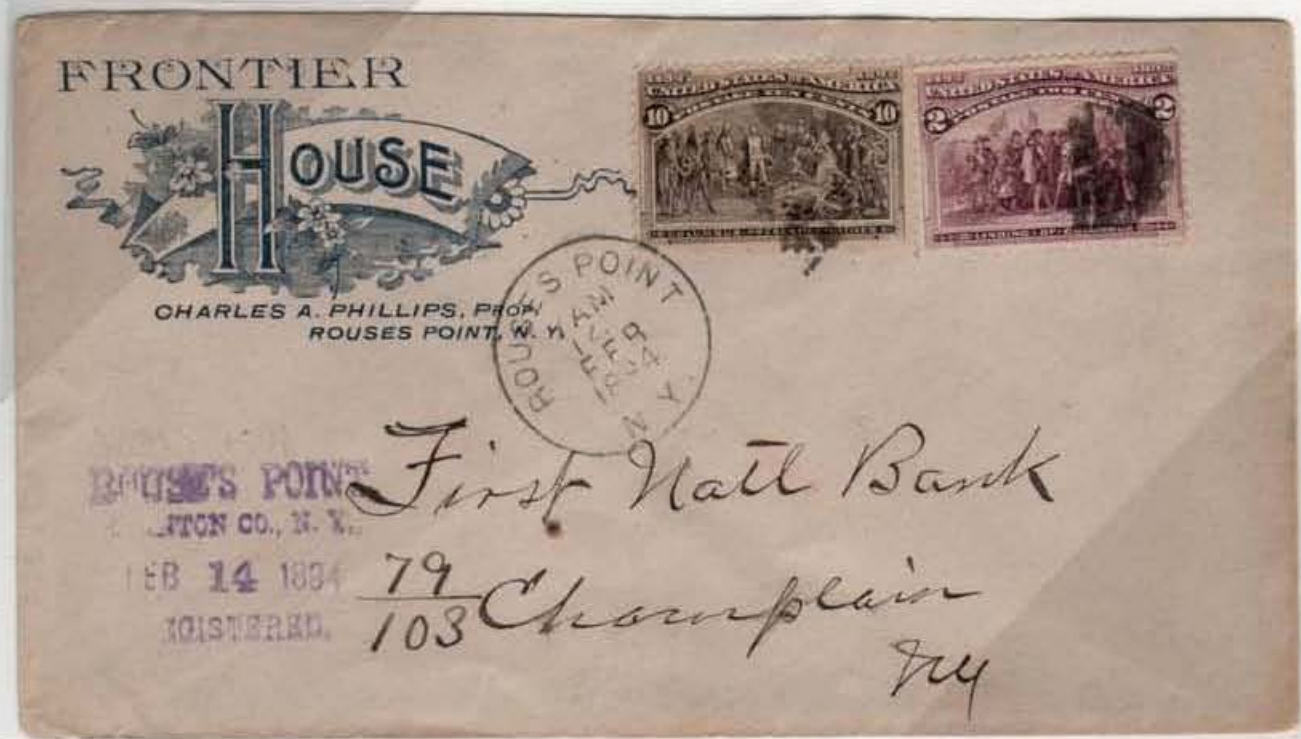 FRONTIER
HOUSE
CHARLES A. PHILLIPS, PROP.
ROUSES POINT, N. Y.
UNITED STATES OF AMERICA
POSTAGE TEN CENTS
10 10
UNITED STATES OF AMERICA
POSTAGE TWO CENTS
2 2
ROUSES POINT
AM
FEB
N.Y.
ROUSE'S POINT
NTON CO., N. Y.
FEB 14 1894
EGISTERED.
First Natl Bank
79
103 Champlain
NY